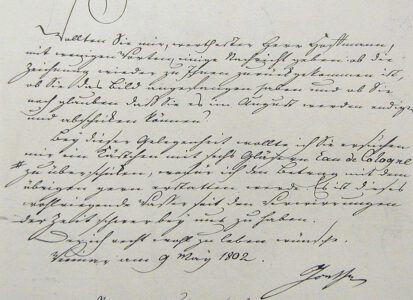 Wollten Sie mir, werthester Herr Hoffmann,
mit wenigen Worten, einige Nachricht geben: ob die
Zeichnung wieder zu Ihnen zurückgekommen ist,
ob Sie das Bild angefangen haben und ob Sie
noch glauben daß Sie es im August werden endigen
und abschicken können?
Bey dieser Gelegenheit wollte ich Sie ersuchen
mir ein Kästchen mit sechs Gläsern Eau de Cologne
zu überschicken, wofür ich den Betrag mit dem
übrigen gern erstatten werde. Es ist dieses
wohlriechende Wasser seit den Verwirrungen
der Zeit schwer bey uns zu haben.
Der ich recht wohl zu leben wünsche.
Weimar am 9 May 1802.
Goethe